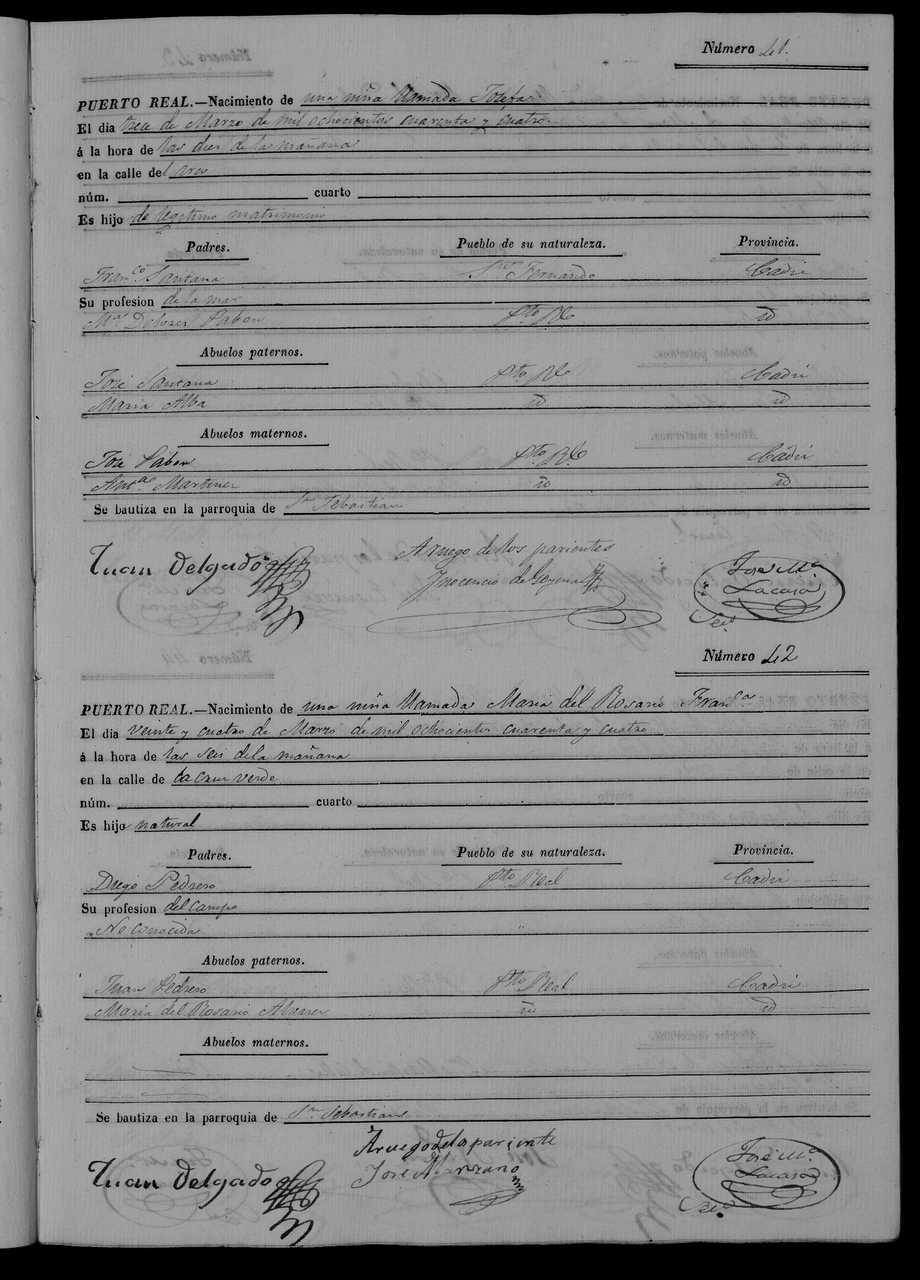 Número 41.
PUERTO REAL.—Nacimiento de una niña llamada Josefa
El dia trece de Marzo de mil ochocientos cuarenta y cuatro
á la hora de las diez de la mañana
en la calle del
núm. cuarto
Es hijo de legitimo matrimonio
Padres. Pueblo de su naturaleza. Provincia.
Franco Santana Sn Fernando Cadiz
Su profesion de la mar
Ma Dolores Pabon Pto Rl id
Abuelos paternos.
José Santana Pto Rl Cadiz
Maria Alba id id
Abuelos maternos.
José Pabon Pto Rl Cadiz
Anta Martinez id id
Se bautiza en la parroquia de Sn Sebastian
Juan Delgado Aruego de los parientes José Ma
Inocencio de Lacasa
Seco
Número 42
PUERTO REAL.—Nacimiento de una niña llamada Maria del Rosario Franca
El dia veinte y cuatro de Marzo de mil ochocientos cuarenta y cuatro
á la hora de las seis dela mañana
en la calle de la cruz verde
núm. cuarto
Es hijo natural
Padres. Pueblo de su naturaleza. Provincia.
Diego Pedrero Pto Real Cadiz
Su profesion del campo
No conocida "
Abuelos paternos.
Juan Pedrero Pto Real Cadiz
Maria del Rosario id id
Abuelos maternos.
Se bautiza en la parroquia de Sn Sebastian
Aruego dela pariente José Ma
Juan Delgado José Manzano Lacasa
Seco